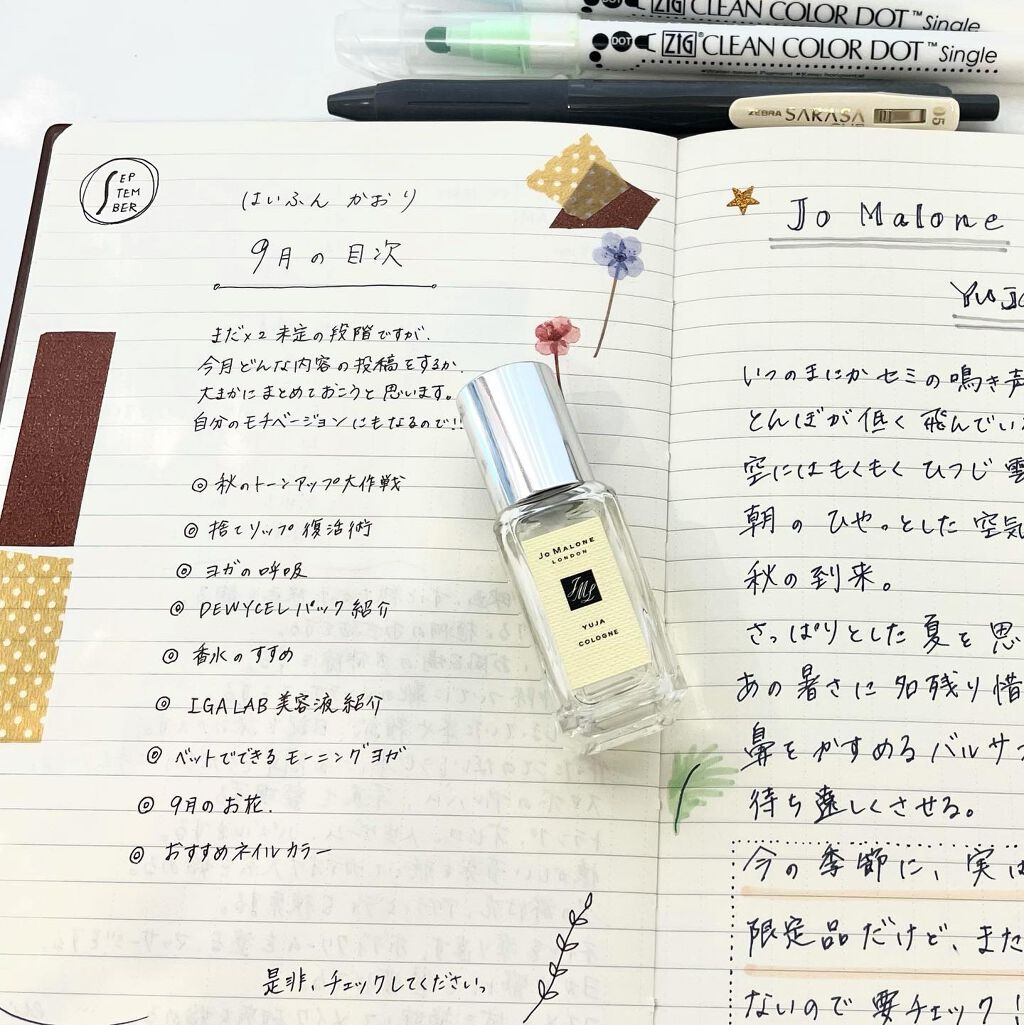 ZIG CLEAN COLOR DOT™ Single
DOT ZIG® CLEAN COLOR DOT™ Single
ZEBRA SARASA CLIP 05
SEPTEMBER
はいふん かおり
9月の目次
まだ×2 未定の段階ですが、
今月どんな内容の投稿をするか、
大まかにまとめておこうと思います。
自分のモチベーションにもなるので!!
◎ 秋のトーンアップ大作戦
◎ 捨てリップ復活術
◎ ヨガの呼吸
◎ DEWYCELパック紹介
◎ 香水のすすめ
◎ IGALAB美容液紹介
◎ ベットでできるモーニングヨガ
◎ 9月のお花.
◎ おすすめネイルカラー
是非、チェックしてくださいっ
JO MALONE
LONDON
JML
YUJA
COLOGNE
Jo Malone
Yuj
いつのまにかセミの鳴き声
とんぼが低く飛んでい
空にはもくもくひつじ雲
朝のひやっとした空気
秋の到来。
さっぱりとした夏を思
あの暑さに名残り惜
鼻をかすめるバルサ
待ち遠しくさせる。
今の季節に、実は
限定品だけど、また
ないので要チェック!